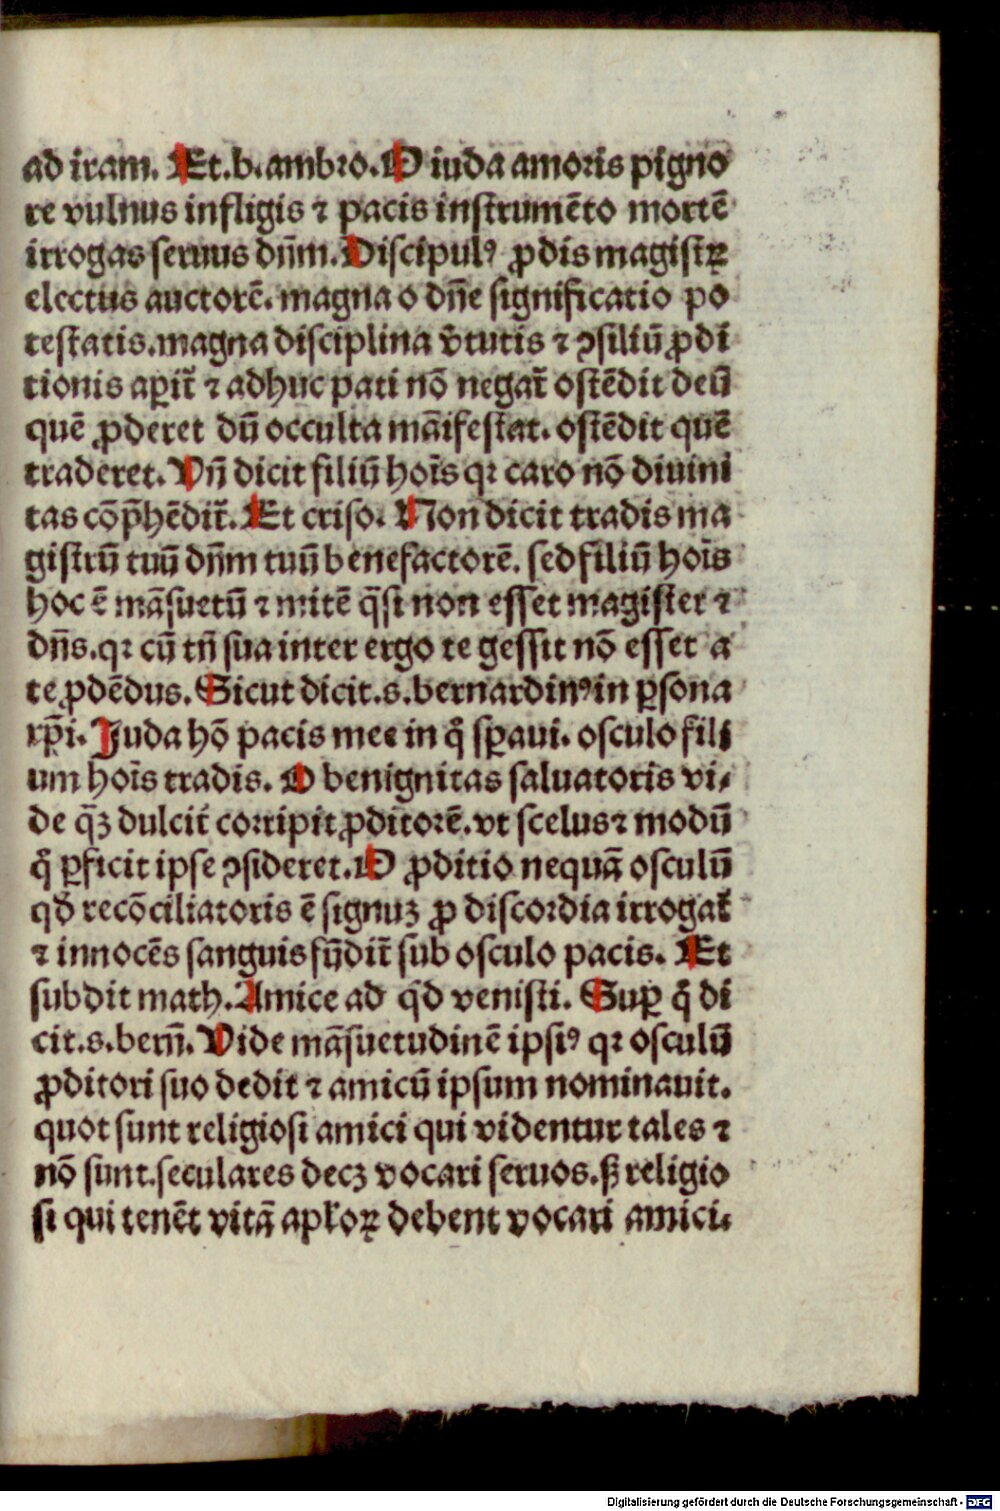 ad iram. Et.b.ambro.O iuda amoris pigno
re vulnus infligis ⁊ pacis instrumēto mortē
irrogas seruus dn̄m.Discipulꝰ ꝓdis magistꝝ
electus auctorē.magna o dn̄e significatio po
testatis.magna disciplina v̄tutis ⁊ ꝯsiliū ꝓdi
tionis aꝑit̄ ⁊ adhuc pati nō negat̄ ostēdit deū
quē ꝓderet dū occulta māifestat.ostēdit quē
traderet.Vn̄ dicit filiū hoīs qꝛ caro nō diuini
tas cōp̄hēdit̄.Et criso.Non dicit tradis ma
gistrū tuū dn̄m tuū benefactorē.sed filiū hoīs
hoc ē māsuetū ⁊ mitē q̄si non esset magister ⁊
dn̄s.qꝛ cū tn̄ sua inter ergo te gessit nō esset a
te ꝓdēdus.Sicut dicit.s.bernardinꝰ in ꝑsona
xp̄i.Juda hō pacis mee in q̊ sꝑaui.osculo fili
um hoīs tradis.O benignitas saluatoris vi⸗
de q̄ꝫ dulcit̄ corripit ꝓditorē.vt scelus ⁊ modū
q̊ ꝑficit ipse ꝯsideret.O ꝓditio nequā osculū
qd̄ recōciliatoris ē signuꝫ ꝓ discordia irrogat̄
⁊ innocēs sanguis fūdit̄ sub osculo pacis.Et
subdit math.Amice ad qd̄ venisti.Suꝑ q̊ di
cit.s.bern̄.Vide māsuetudinē ipsiꝰ qꝛ osculū
ꝓditori suo dedit ⁊ amicū ipsum nominauit.
quot sunt religiosi amici qui videntur tales ⁊
nō sunt.seculares decꝫ vocari seruos.sꝫ religio
si qui tenēt vitā apl̄oꝝ debent vocari amici.
Digitalisierung gefördert durch die Deutsche Forschungsgemeinschaft - DFG